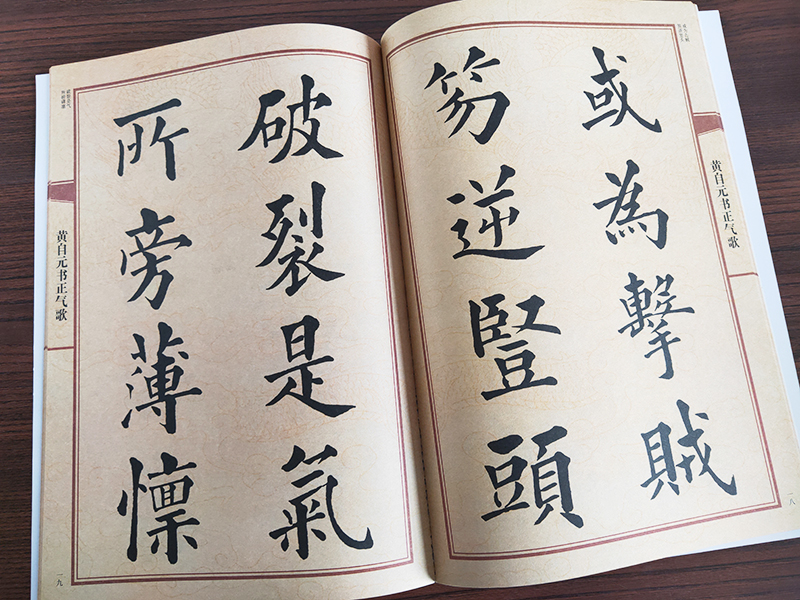 或為擊賊
笏逆豎頭
黄自元书正气歌
一八
破裂是氣
所旁薄懍
黄自元书正气歌
一九